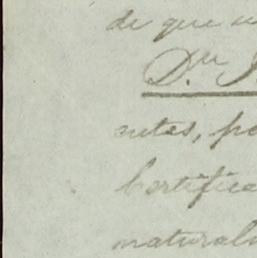 de que
Dn
entes, po
Certifica
natural